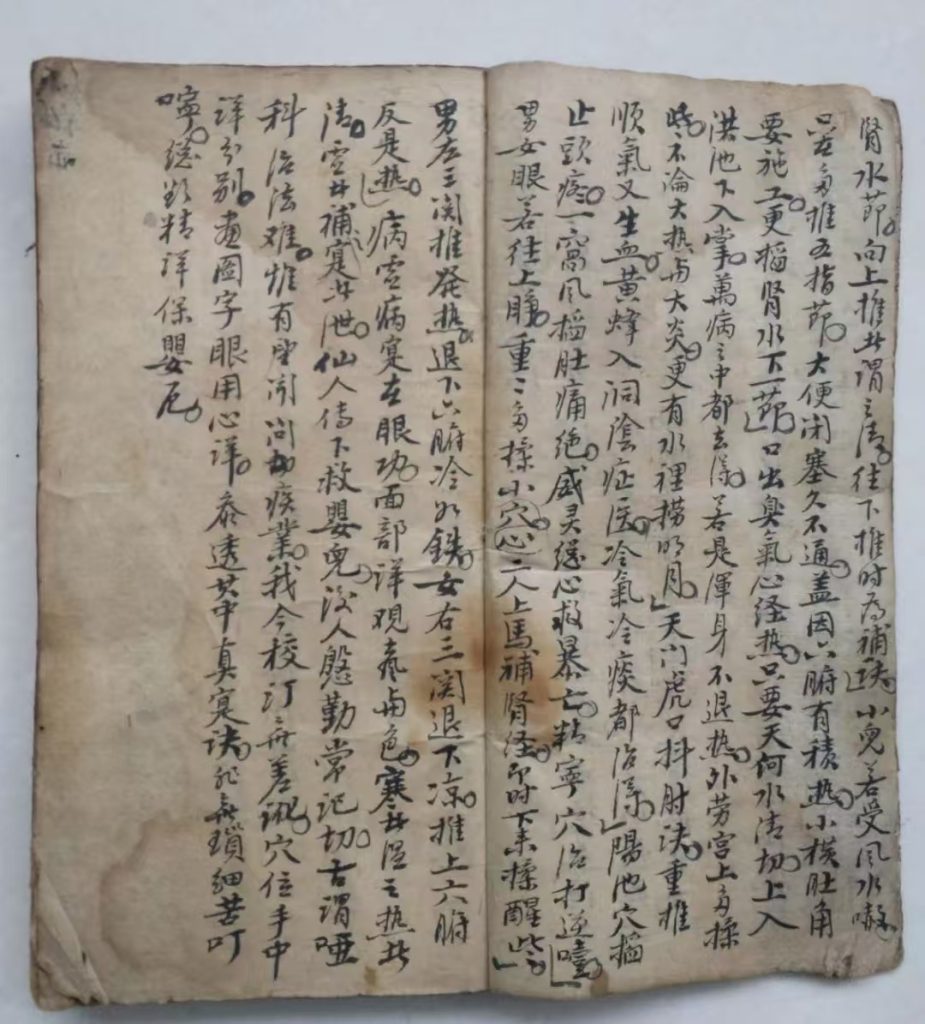 腎水節向上推此謂之清往下推时為補訣小兒若受风水嗽
只在多推五指節大便闭塞久不通盖因六腑有積热小横肚角
要施工更掐腎水下一節口出臭氣心经热只要天何水清切上入
洪池下入掌萬病之中都去得若是渾身不退热外劳宫上多揉
些不論大热与大炎更有水裡捞明月天门虎口抖肘诀重推
順氣又生血黄蜂入洞陰症医冷氣冷痰都治得陽池穴掐
止頭疼一窩风掐肚痛绝威灵总心救暴亡精寧穴治打逆噎
男女眼若往上睜重二多揉小穴心二人上馬補腎经即时下来揉醒些
男左三関推発热退下六腑冷如鉄女右三関退下凉推上六腑
反是热病虚病寔在眼功面部详观氣与色寒者温之热者
清虚者補寔者泄仙人传下救嬰兒後人慇勤常记切古谓哑
科治法难惟有望闻问切疾業我今校订無差訛穴位手中
详分别畫圖字眼用心详参透其中真寔诀非無瑣細苦叮
嚀总欲精详保嬰